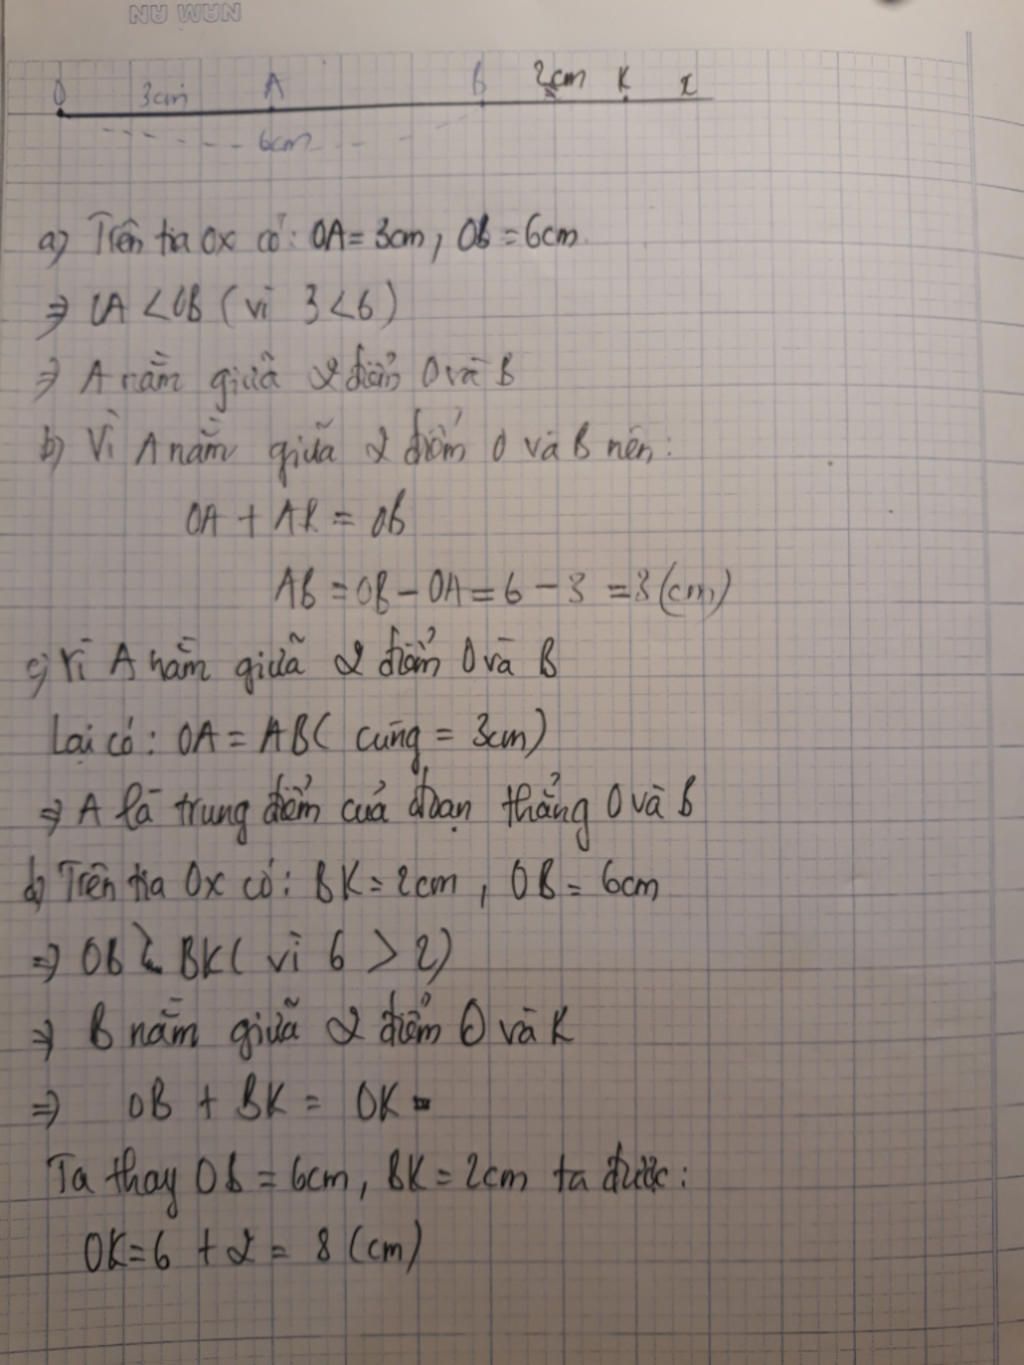 NAM AN
O 3cm A B 2cm K x
6cm
a) Trên tia Ox có: OA = 3cm, OB = 6cm
⇒ OA < OB (vì 3 < 6)
⇒ A nằm giữa 2 điểm O và B
b) Vì A nằm giữa 2 điểm O và B nên:
OA + AB = OB
AB = OB - OA = 6 - 3 = 3 (cm)
c) Vì A nằm giữa 2 điểm O và B
Lại có: OA = AB ( cùng = 3cm)
⇒ A là trung điểm của đoạn thẳng O và B
d) Trên tia Ox có: BK = 2cm, OB = 6cm
⇒ OB > BK ( vì 6 > 2)
⇒ B nằm giữa 2 điểm O và K
⇒ OB + BK = OK
Ta thay OB = 6cm, BK = 2cm ta được:
OK = 6 + 2 = 8 (cm)